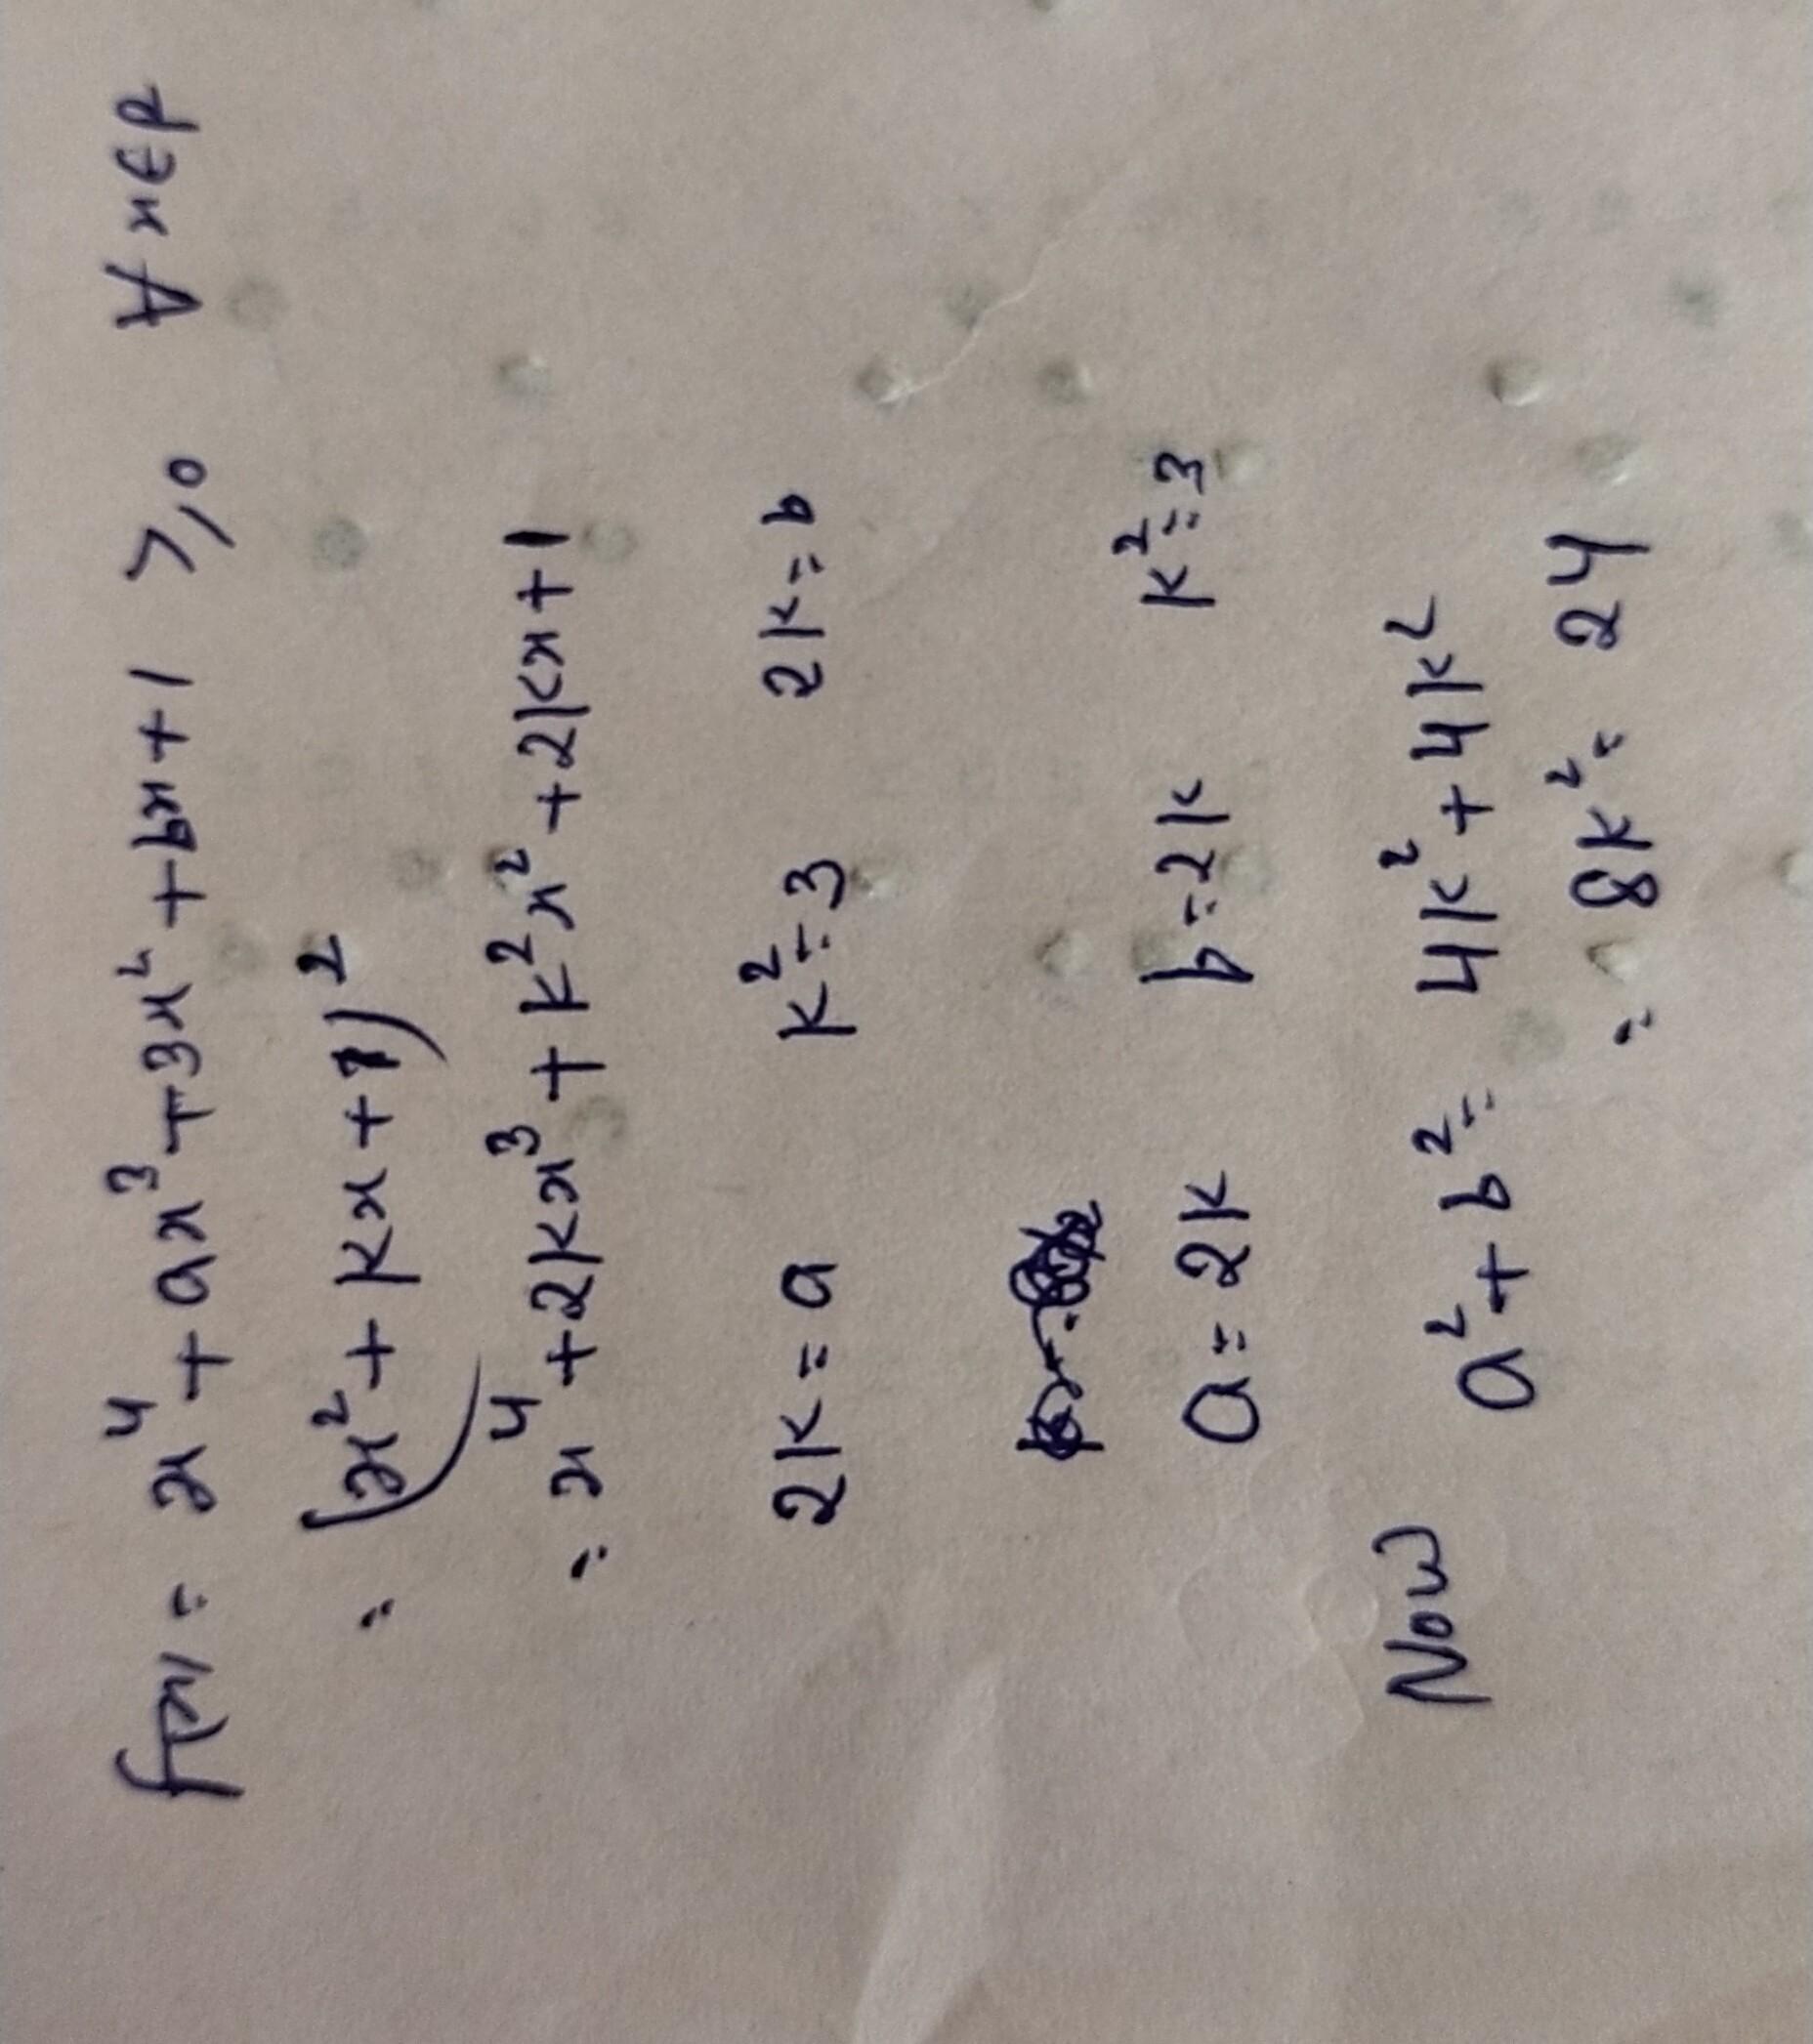 f(x) = x⁴ + ax³ + 3x² + bx + 1 ≥ 0 ∀ x∈R
= (x² + kx + 1)²
= x⁴ + 2kx³ + k²x² + 2kx + 1
2k = a k² = 3 2k = b
a = 2k b = 2k k² = 3
Now a² + b² = 4k² + 4k²
= 8k² = 24